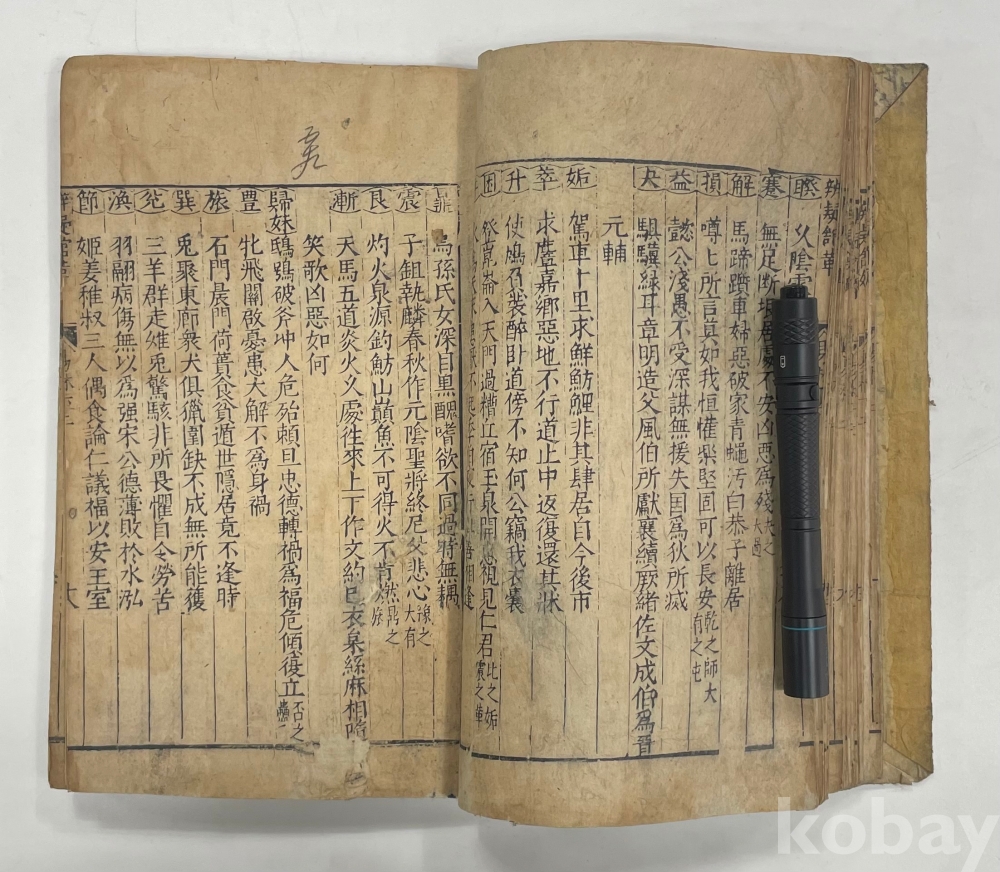 睽 久陰雲
蹇 無足断跟居處不安凶惡爲殘
解 馬蹄躓車婦惡破家青蠅汚白恭子離居
損 噂〻所言莫如我恒懽樂堅固可以長安乾之師大有之屯
益 懿公淺愚不受深謀無援失囯爲狄所滅
夬 騏驥緑耳章明造父風伯所獻襄續厥緒佐文成伯爲晉
元輔
姤 駕車十里求鮮魴鯉非其肆居自令後市
萃 求麀嘉鄉惡地不行道止中返復還其牀
升 使鳩負装醉卧道傍不知何公竊我衣囊
困 登崑崙入天門過糟丘宿玉泉開惠視見仁君比之姤
烏孫氏女深目黒醜嗜欲不同過時無耦
震 子鉏執麟春秋作元陰聖將終尼父悲心豫之大有
艮 灼火泉源釣魴山巔魚不可得火不肯然鼎之旅
漸 天馬五道炎火久處徃來上下作文約已衣枲絲麻相隨
笑歌凶惡如何
歸妹 鴟鴞破斧冲人危殆頼旦忠德轉禍爲福危傾復立否之蠱
豊 牝飛關啟憂患大解不爲身禍
旅 石門晨門荷蕢食貧遁世隠居竟不逢時
巽 兎聚東廊衆犬俱獵圍缺不成無所能獲
兊 三羊群走雉兎驚駭非所畏懼自令勞苦
渙 羽翮病傷無以爲强宋公德薄敗於水泓
節 姬姜稚叔三人偶食論仁議福以安王室
kobay